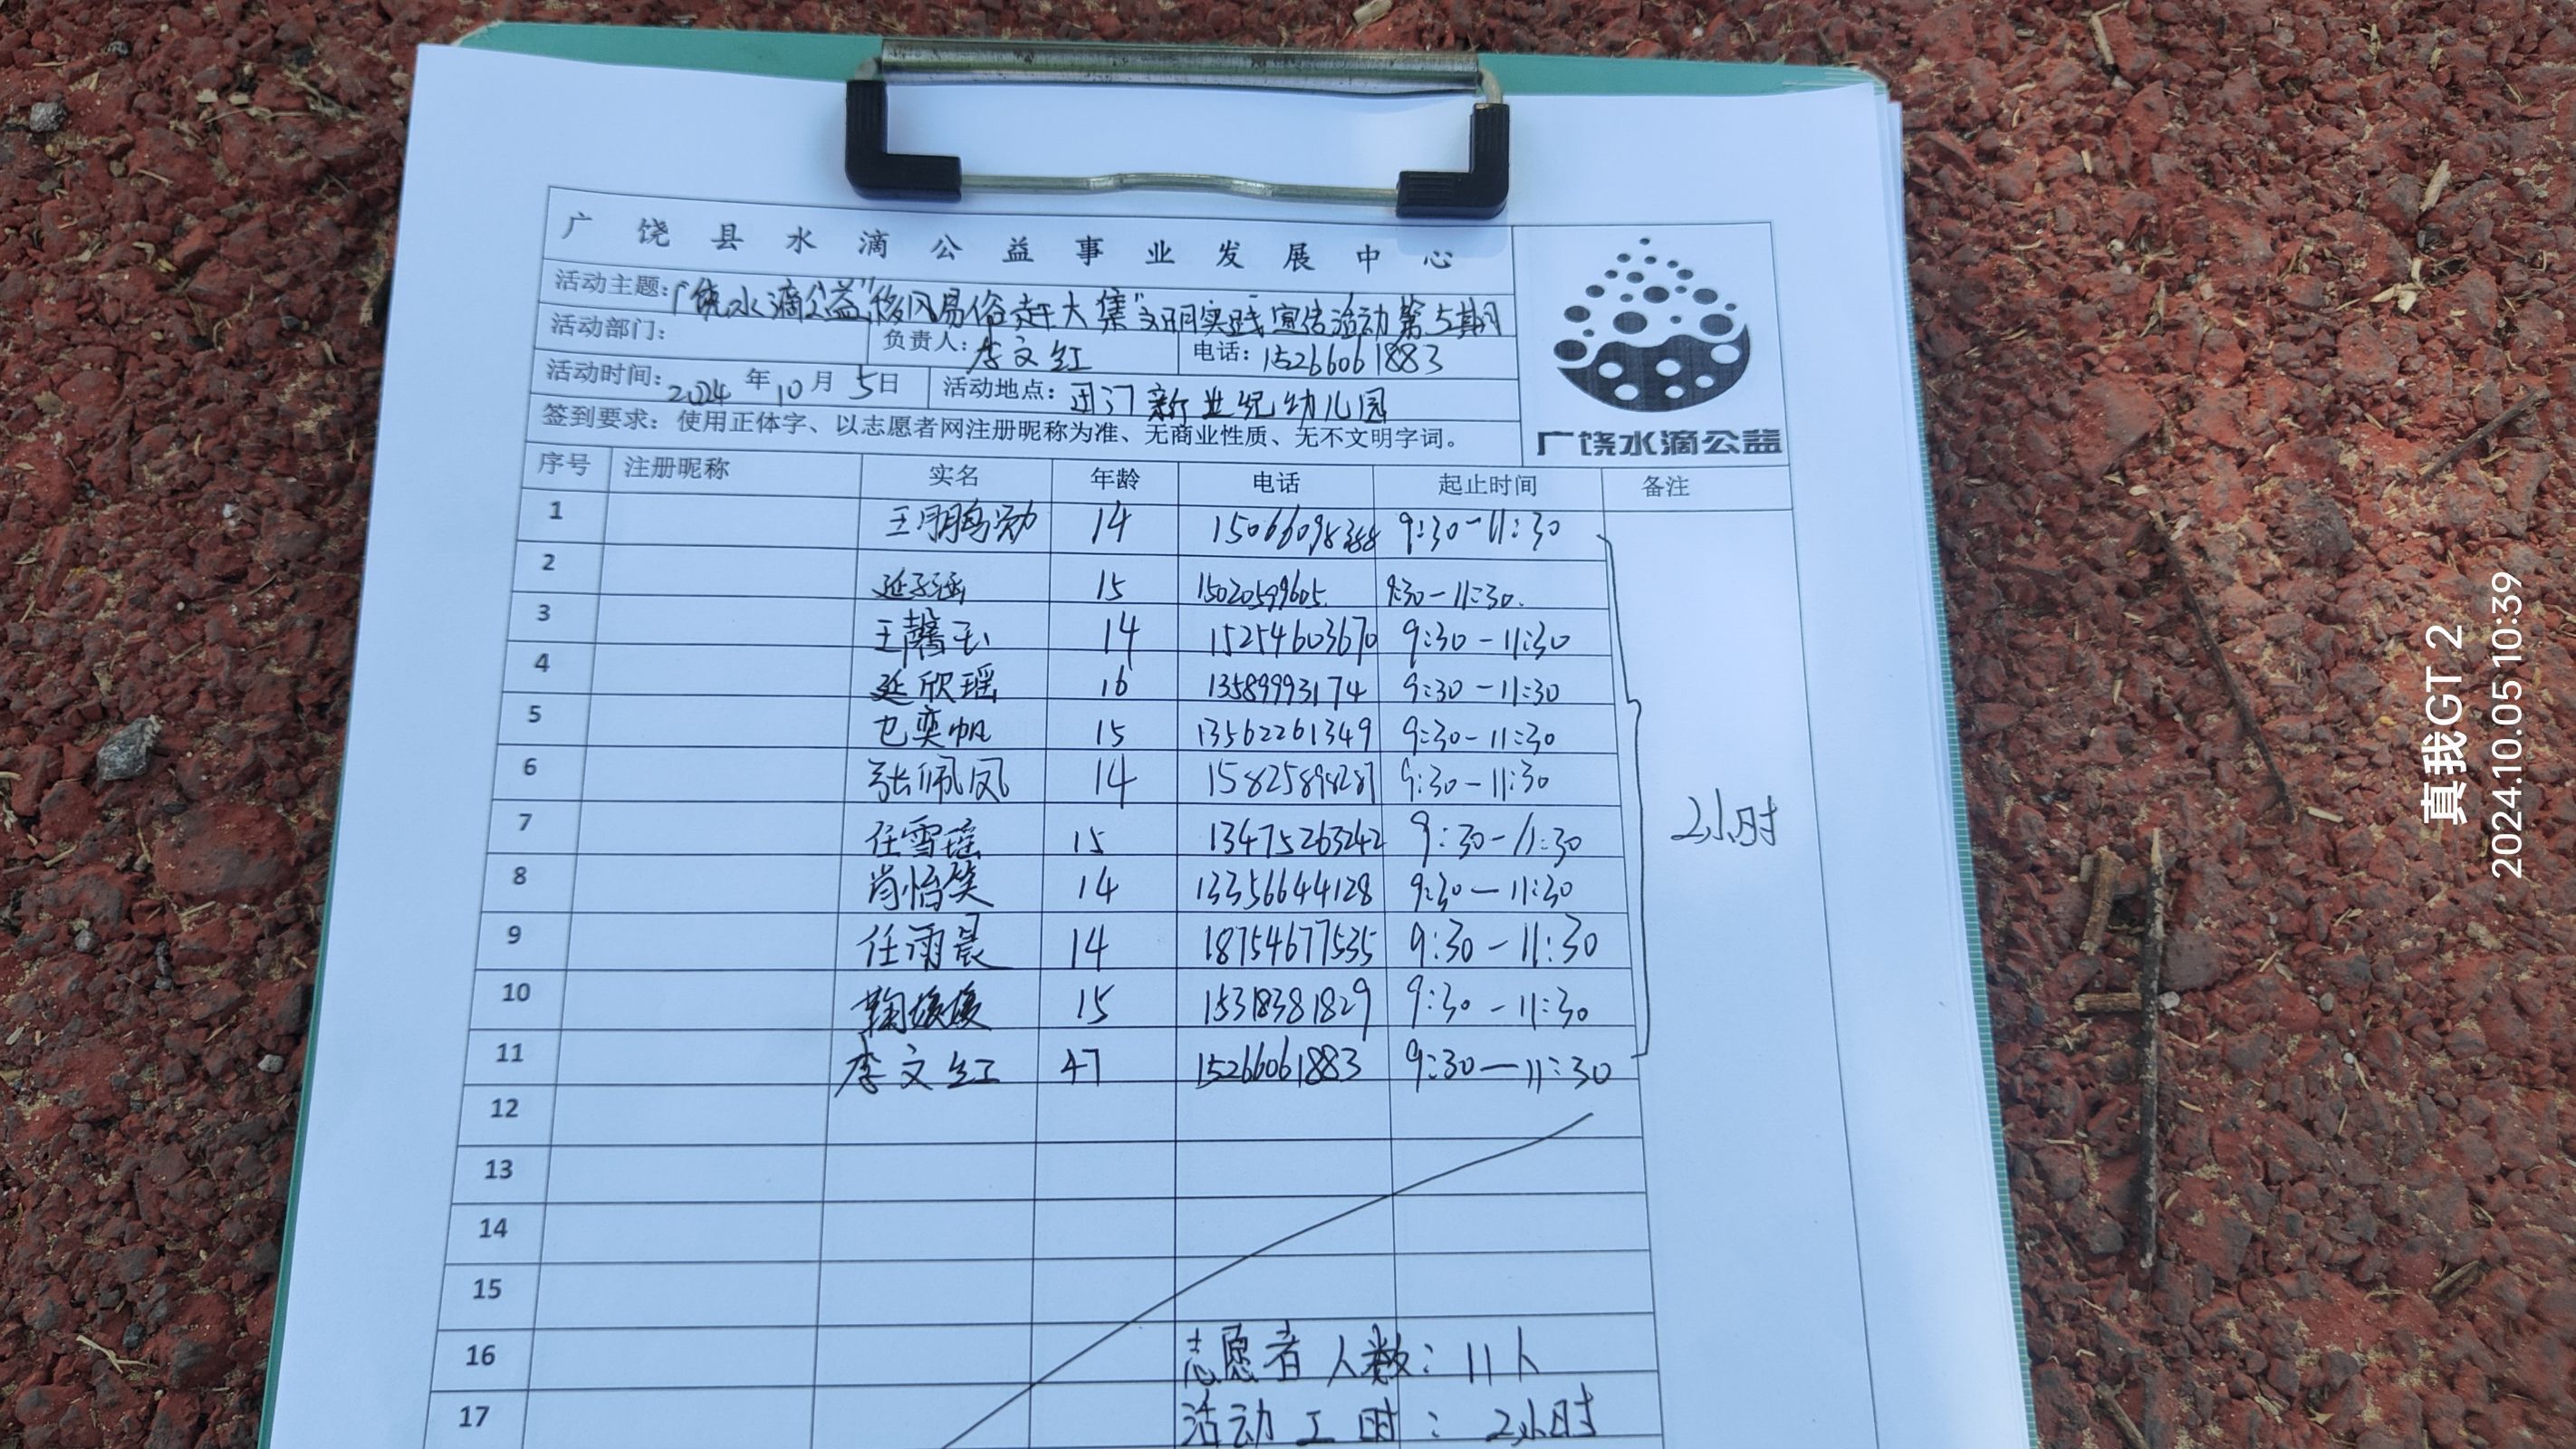 广饶县水滴公益事业发展中心
活动主题:广饶水滴公益"移风易俗赶大集"文明实践宣传活动第5期
活动部门: 负责人:李文红 电话:15266061883
活动时间:2024年10月5日 活动地点: 新世纪幼儿园
签到要求:使用正体字、以志愿者网注册昵称为准、无商业性质、无不文明字词。
广饶水滴公益
序号 注册昵称 实名 年龄 电话 起止时间 备注
1 14 9:30-11:30
2 延子涵 15 15020599605. 9:30-11:30.
3 王馨玉 14 15254603670 9:30-11:30
4 延欣瑶 16 13589993174 9:30-11:30
5 奕帆 15 13562261349 9:30-11:30
6 张佩凤 14 15825898287 9:30-11:30
7 任雪瑶 15 13475263242 9:30-11:30
8 肖怡笑 14 13356644128 9:30-11:30
9 任雨晨 14 18754677535 9:30-11:30
10 鞠媛媛 15 15318381829 9:30-11:30
11 李文红 47 15266061883 9:30-11:30
2小时
12
13
14
15
16 志愿者人数:11人
17 活动工时:2小时
真我GT 2
2024.10.05 10:39